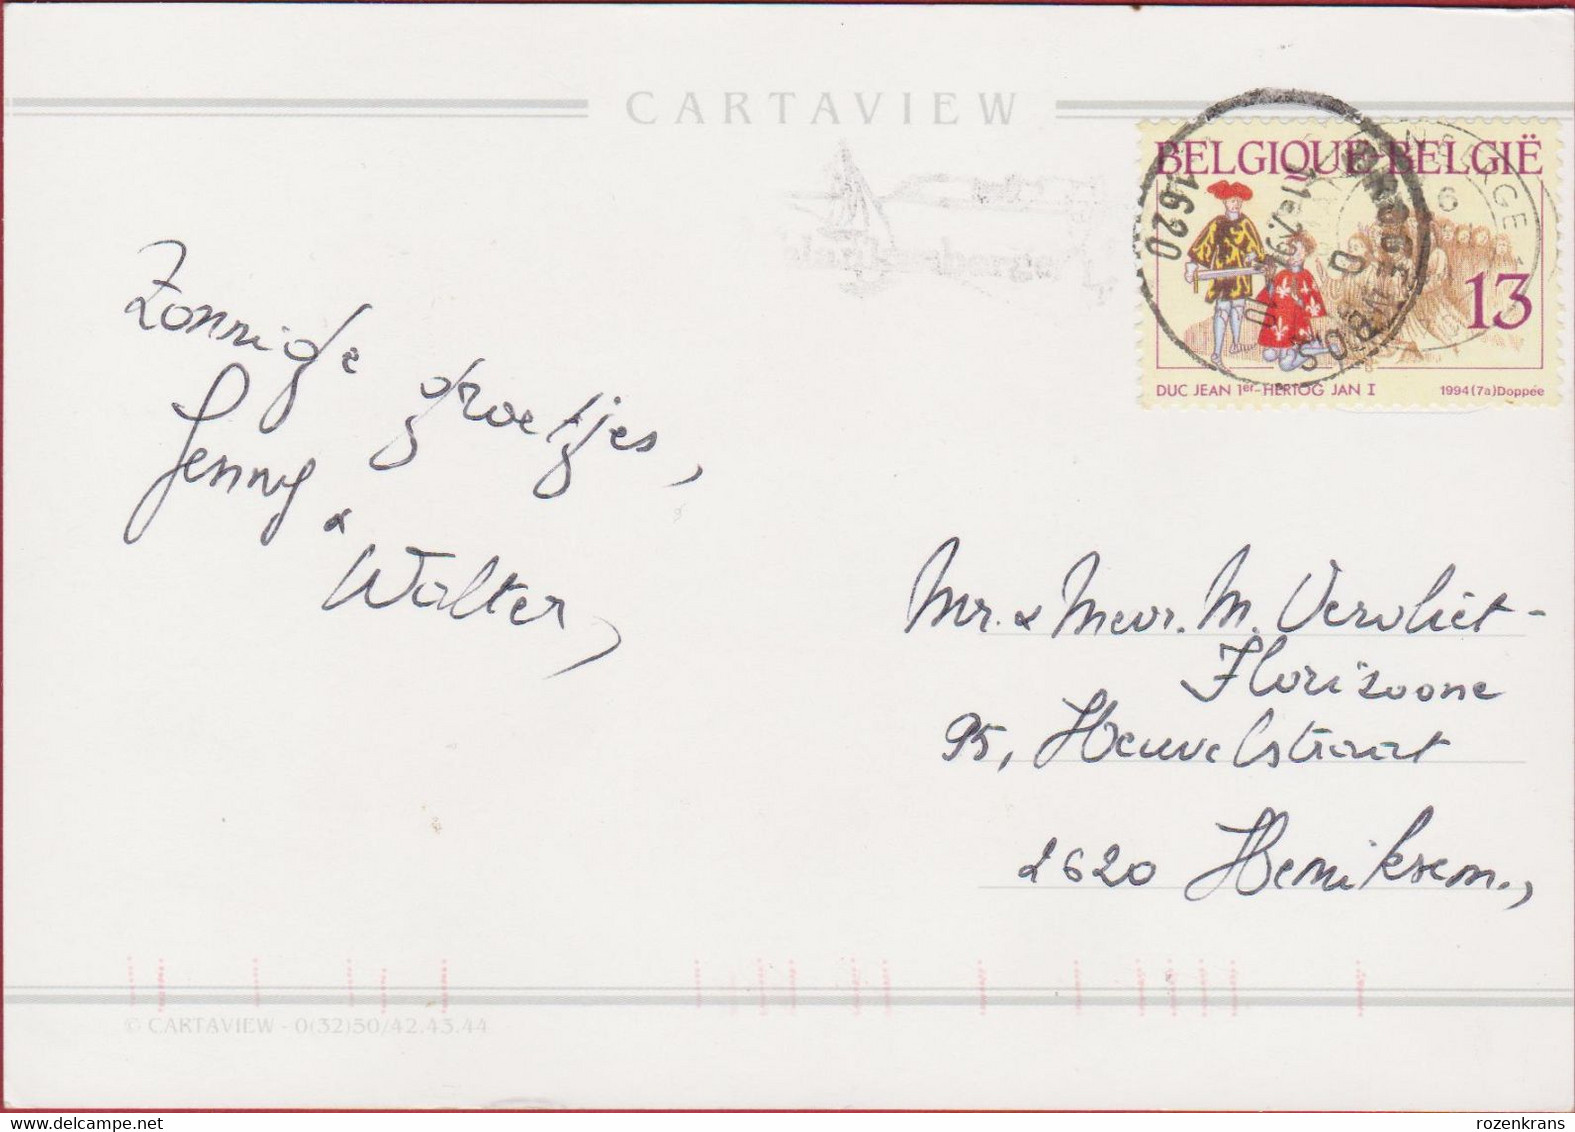 CARTAVIEW
BELGIQUE-BELGIË
13
DUC JEAN 1er-HERTOG JAN I 1994(7a)Doppée
1620
Zonnige groetjes,
Jenny &
Walter,
Mr. & Mevr. M. Vervliet-
Florizoone
95, Heuvelstraat
2620 Hemiksem.,
© CARTAVIEW - 0(32)50/42.43.44
delcampe.net
rozenkrans